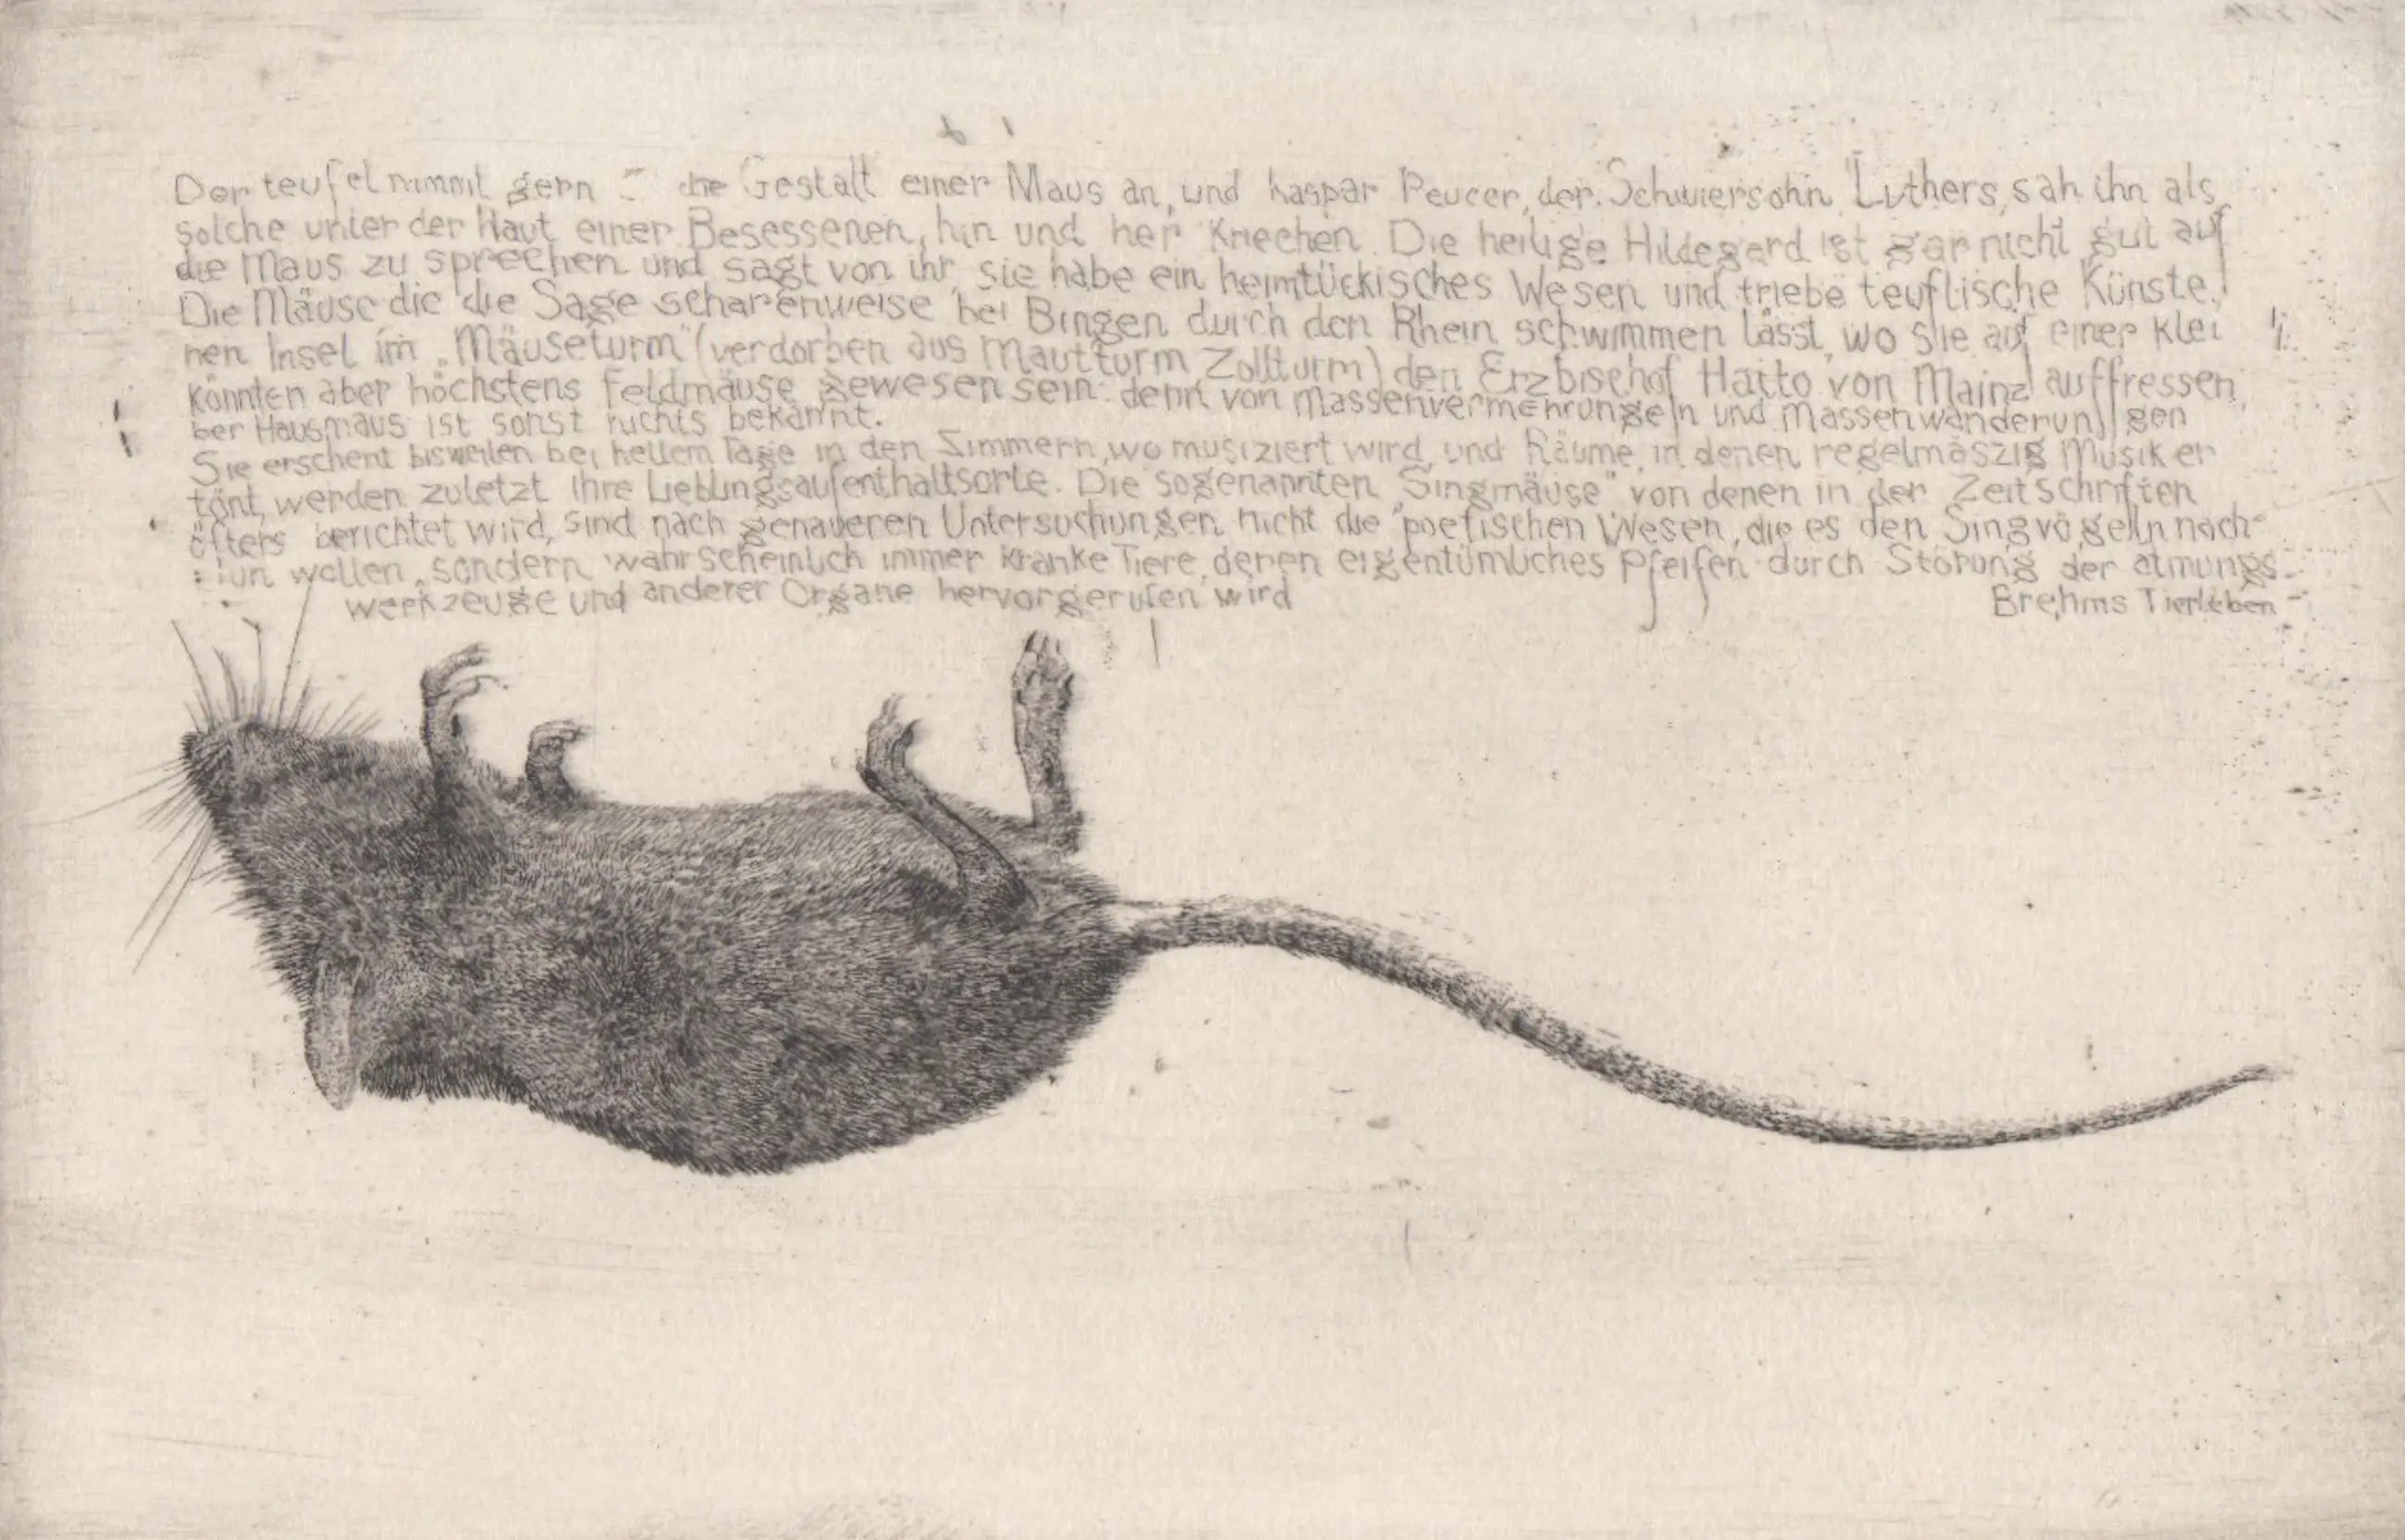 Der teufel nimmt gern die Gestalt einer Maus an, und Kaspar Peucer, der Schwiersohn Luthers, sah ihn als
solche unter der Haut einer Besessenen, hin und her Kriechen. Die heilige Hildegard ist gar nicht gut auf
die Maus zu sprechen und sagt von ihr, sie habe ein heimtückisches Wesen und triebe teuflische Künste.
Die Mäuse die die Sage scharenweise bei Bingen durch den Rhein schwimmen lässt, wo sie auf einer klei
nen Insel im „Mäuseturm" (verdorben aus Mautturm Zollturm) den Erzbischof Hatto von Mainz auffressen,
Könnten aber höchstens Feldmäuse gewesen sein: denn von Massenvermehrungen und Massenwanderungen
ber Hausmaus ist sonst nichts bekannt.
Sie erschent bisweilen bei hellem Tage in den Zimmern, wo musiziert wird, und Räume, in denen regelmäszig Musik er
tönt, werden zuletzt ihre Lieblingsaufenthaltsorte. Die sogenannten „Singmäuse" von denen in der Zeitschriften
öfters berichtet wird, sind nach genaueren Untersuchungen nicht die poetischen Wesen, die es den Singvögeln nach
tun wollen, sondern wahrscheinlich immer kranke Tiere, deren eigentümliches Pfeifen durch Störung der atmungs
werkzeuge und anderer Organe hervorgerufen wird
Brehms Tierleben